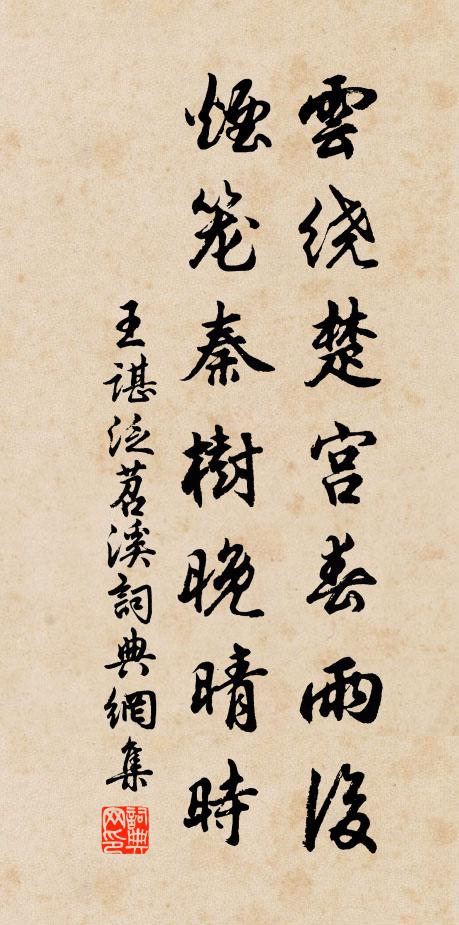 雲繞楚宫春雨後
煙笼秦樹晚晴時
王諶泛苕溪詞典網集
詞典网印